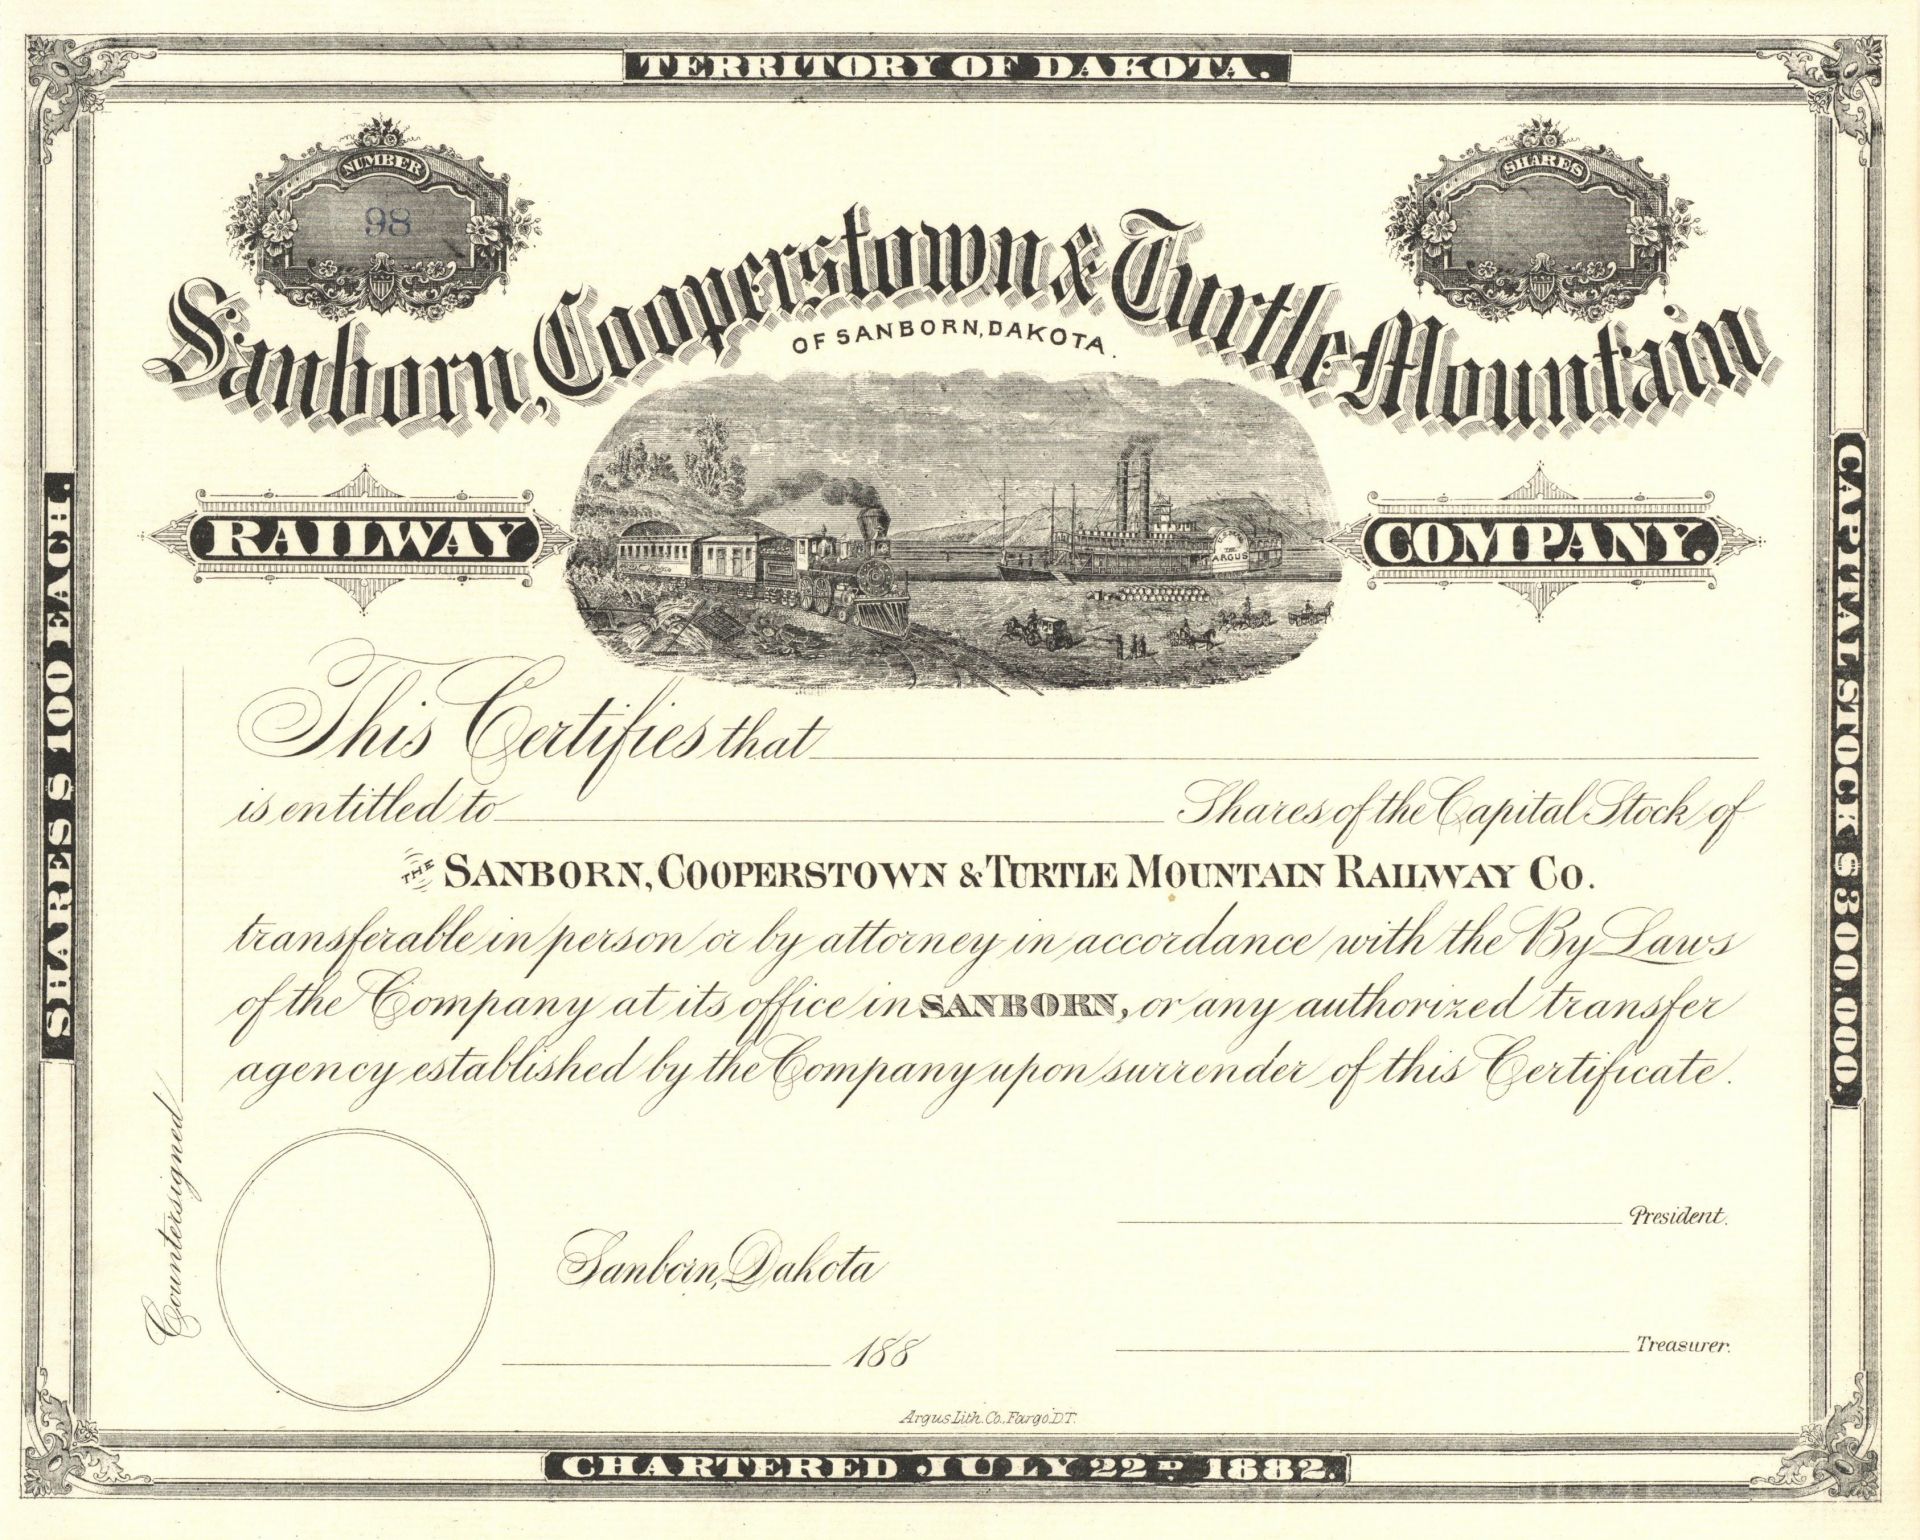 TERRITORY OF DAKOTA.
NUMBER
98
SHARES
Sanborn, Cooperstown & Turtle Mountain
OF SANBORN, DAKOTA.
RAILWAY
COMPANY.
THE ARGUS
SHARES $100 EACH.
CAPITAL STOCK $300,000.
This Certifies that
is entitled to Shares of the Capital Stock of
THE SANBORN, COOPERSTOWN & TURTLE MOUNTAIN RAILWAY CO.
transferable in person or by attorney in accordance with the By Laws
of the Company at its office in SANBORN, or any authorized transfer
agency established by the Company upon surrender of this Certificate.
Countersigned
President.
Sanborn, Dakota
188
Treasurer.
Argus Lith. Co. Fargo D.T.
CHARTERED JULY 22D 1882.